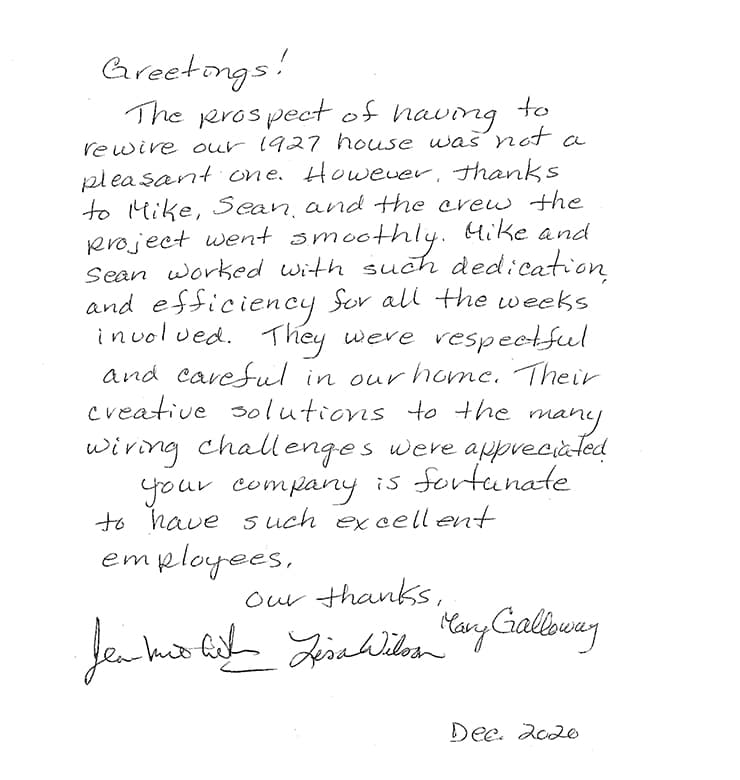 Greetings!
The prospect of having to
rewire our 1927 house was not a
pleasant one. However, thanks
to Mike, Sean, and the crew the
project went smoothly. Mike and
Sean worked with such dedication
and efficiency for all the weeks
involved. They were respectful
and careful in our home. Their
creative solutions to the many
wiring challenges were appreciated
your company is fortunate
to have such excellent
employees.
our thanks,
Lisa Wilson Mary Galloway
Dec. 2020